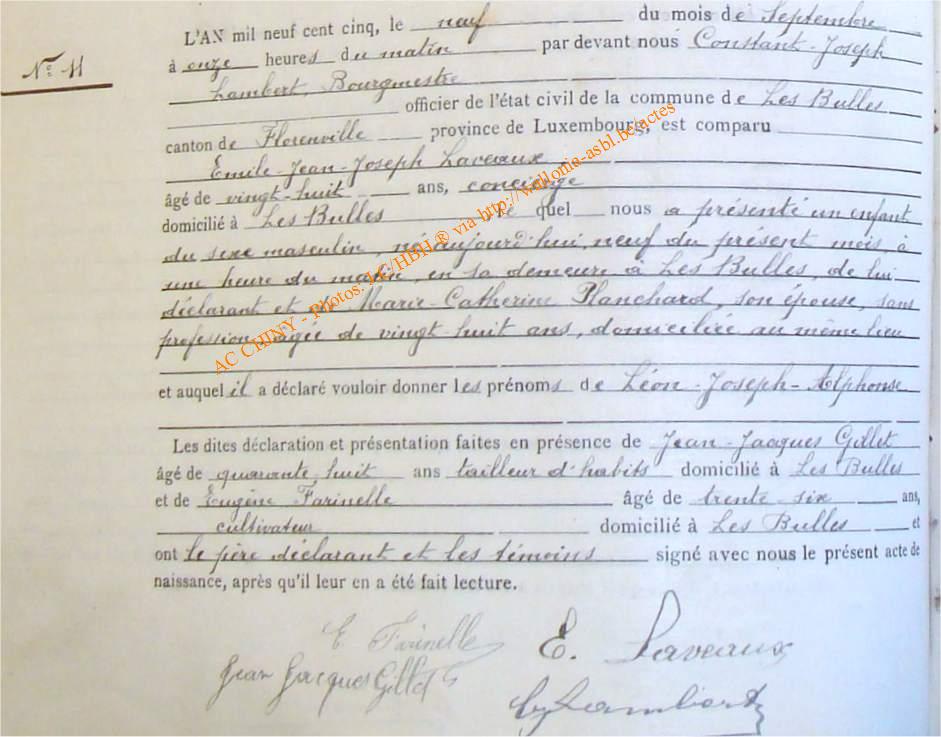 L'AN mil neuf cent cinq, le neuf du mois de Septembre
N° 11
à onze heures du matin par devant nous Constant-Joseph
Lambert, Bourgmestre
officier de l'état civil de la commune de Les Bulles
canton de Florenville province de Luxembourg, est comparu
Emile-Jean-Joseph Laveaux
âgé de vingt-huit ans, concierge
domicilié à Les Bulles, le quel nous a présenté un enfant
du sexe masculin, né aujourd'hui, neuf du présent mois, à
une heure du matin, en sa demeure à Les Bulles, de lui
déclarant et de Marie-Catherine Planchard, son épouse, sans
profession, âgée de vingt-huit ans, domiciliée au même lieu
et auquel il a déclaré vouloir donner les prénoms de Léon-Joseph-Alphonse
Les dites déclaration et présentation faites en présence de Jean-Jacques Gillet
âgé de quarante-huit ans tailleur d'habits domicilié à Les Bulles
et de Eugène Farinelle âgé de trente-six ans,
cultivateur domicilié à Les Bulles et
ont le père déclarant et les témoins signé avec nous le présent acte de
naissance, après qu'il leur en a été fait lecture.
E. Farinelle
E. Laveaux
Jean Jacques Gillet
Lambert
AC CHINY - Photos: LC/HBH ® via http://wallonia-asbl.be/actes